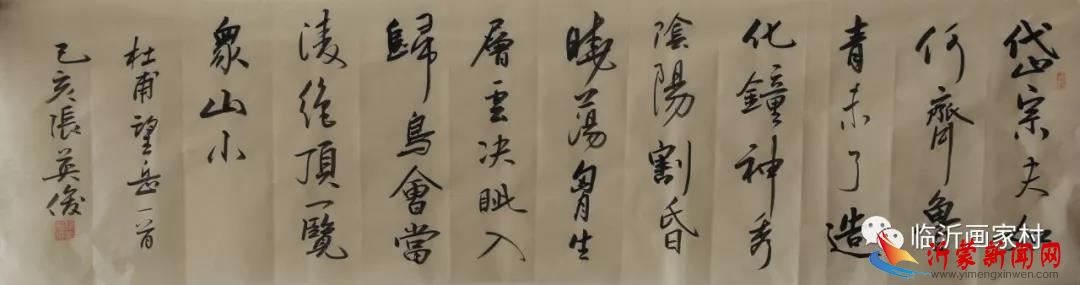 岱宗夫如
何齊魯
青未了造
化鐘神秀
陰陽割昏
曉蕩胷生
層雲决眦入
歸鳥會當
凌絶頂一覽
眾山小
杜甫望岳一首
己亥張英俊
临沂画家村
沂蒙新闻网
www.yimengxinwen.com